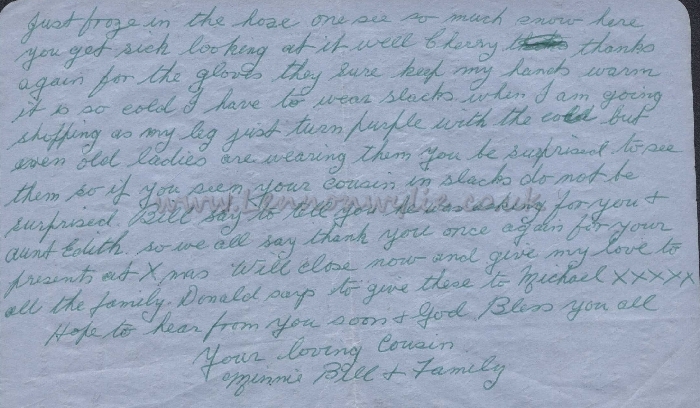 Just froze in the hose one see so much snow here
you get sick looking at it well Cherry thanks
again for the gloves they sure keep my hands warm
it is so cold I have to wear slacks when I am going
shopping as my leg just turn purple with the cold but
even old ladies are wearing them you be surprised to see
them so if you seen your cousin in slacks do not be
surprised. Bill say to tell you he was asking for you &
aunt Edith. so we all say thank you once again for your
presents at Xmas Will close now and give my love to
all the family. Donald says to give these to Michael XXXXX
Hope to hear from you soon & God Bless you all
Your loving Cousin
Minnie Bill & Family